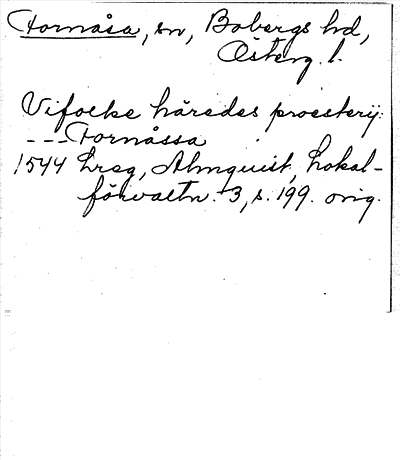 Fornåsa, sn, Bobergs hd,
Österg. l.
Vifolke härades proesterij:
- - - Fornåssa
1544 Lreg, Almquist, Lokal-
förvaltn. 3, s. 199. orig.